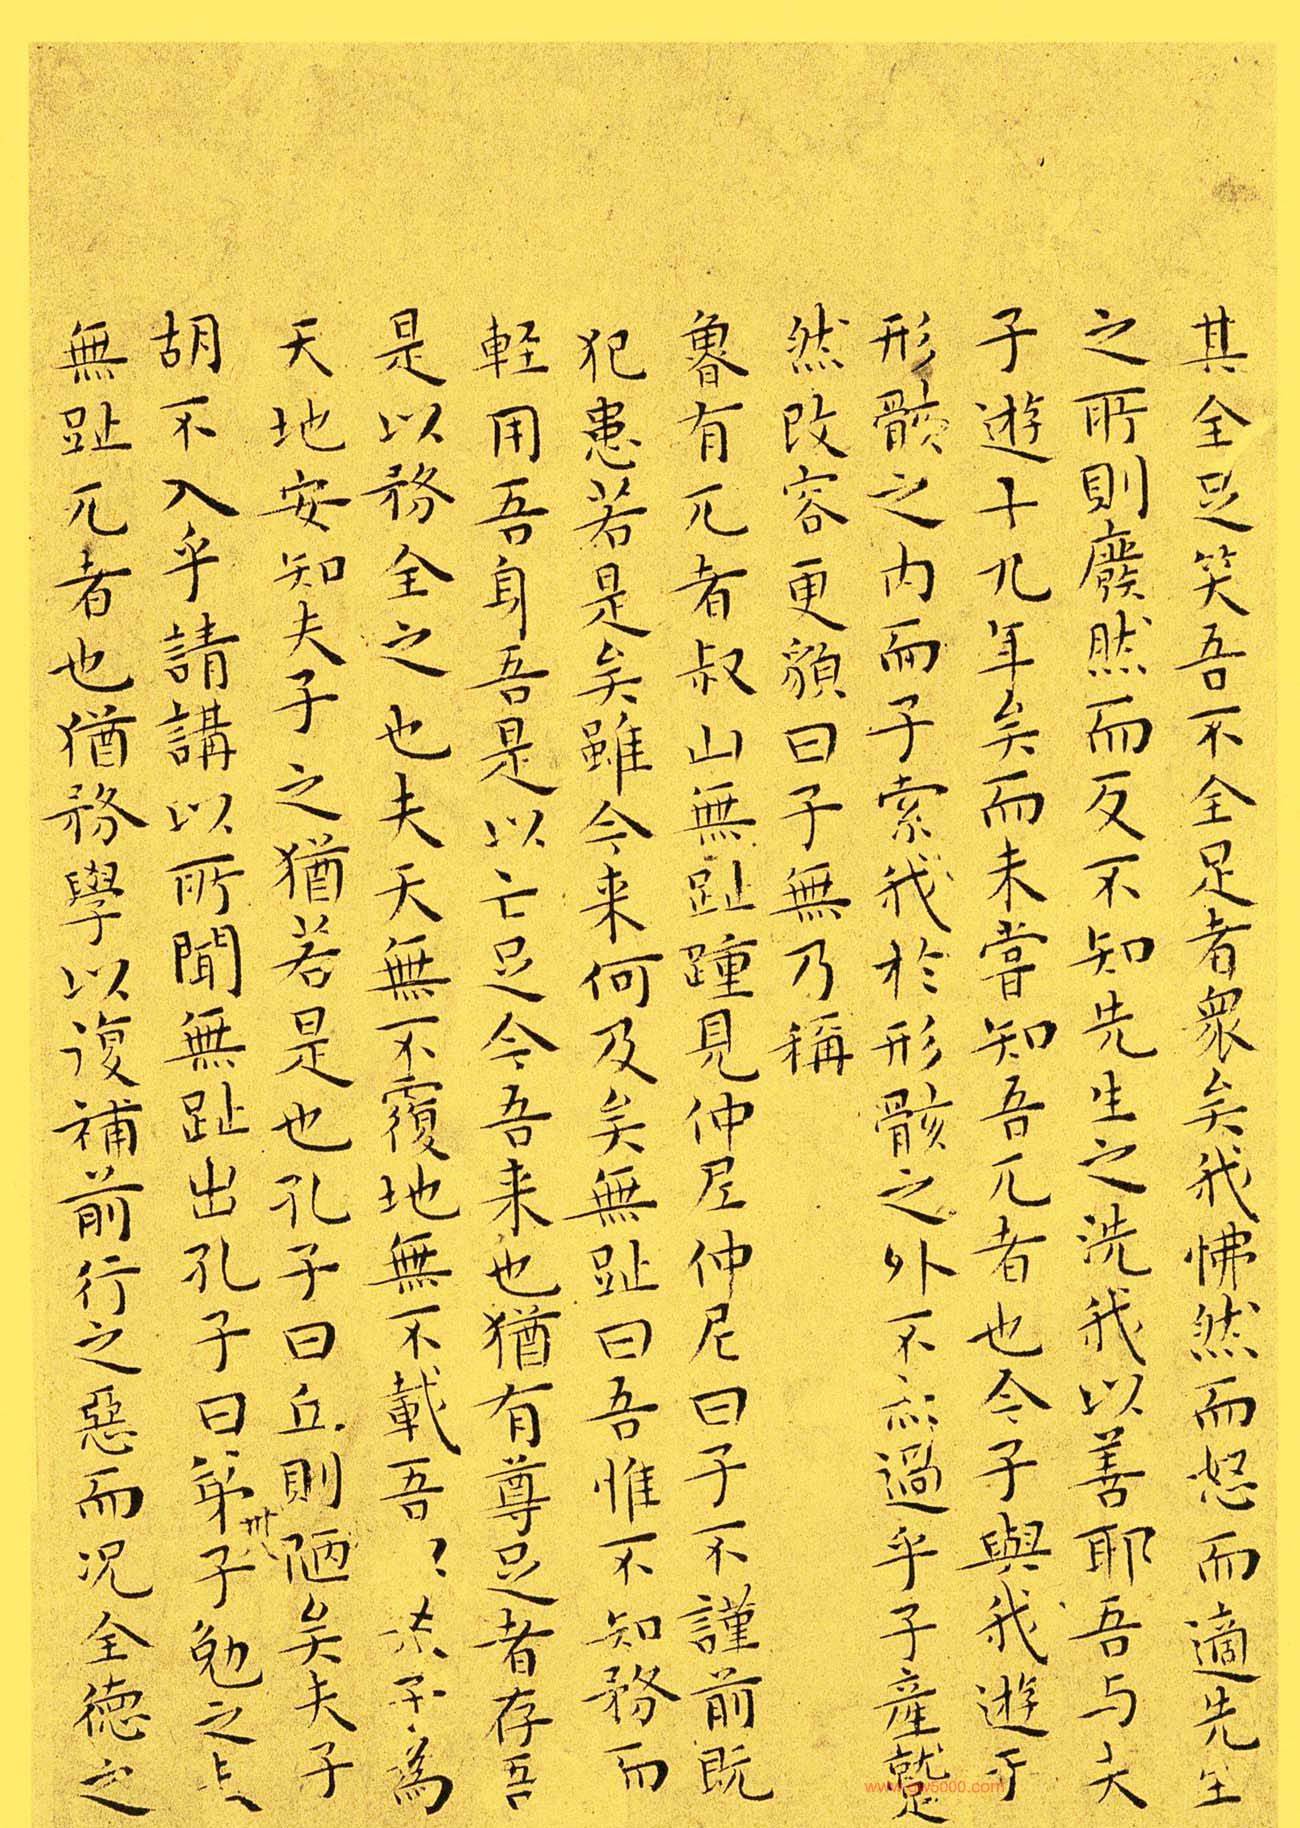 其全足笑吾不全足者衆矣我怫然而怒而適先生
之所則廢然而反不知先生之洗我以善耶吾与夫
子遊十九年矣而未嘗知吾兀者也今子與我遊于
形骸之内而子索我於形骸之外不亦過乎子産蹵
然改容更䫉曰子無乃稱
魯有兀者叔山無趾踵見仲尼仲尼曰子不謹前既
犯患若是矣雖今来何及矣無趾曰吾惟不知務而
輕用吾身吾是以亡足今吾来也猶有尊足者存吾
是以務全之也夫天無不覆地無不載吾以夫子為
天地安知夫子之猶若是也孔子曰丘則陋矣夫子
胡不入乎請講以所聞無趾出孔子曰弟子勉之
無趾兀者也猶務學以復補前行之惡而况全德之